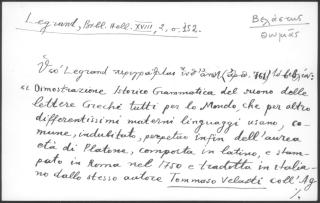 Legrand, Bibl. Hell. XVIII, 2, σ. 152.
Βελάστης
Θωμᾶς
Legrand περιγράφεται
« Dimostrazione Istorico Grammatica del suono delle
lettere Greche tutti per lo Mondo, che per altro
differentissimi materni linguaggi usano, co-
mune, indubitato, perpetuo infin dell'aurea
età di Platone, composta in latino, e stam-
pato in Roma nel 1750 e tradotta in italia-
no dallo stesso autore Tommaso Velasti coll'Ag-